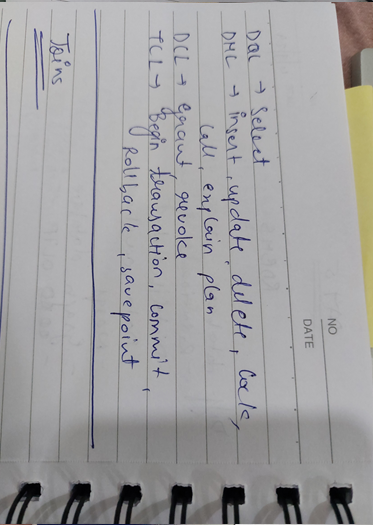 NO
DATE
DQL → Select
DML → insert, update, delete, lock,
call, explain plan
DCL → grant revoke
TCL → Begin transaction, commit,
rollback, savepoint
Joins